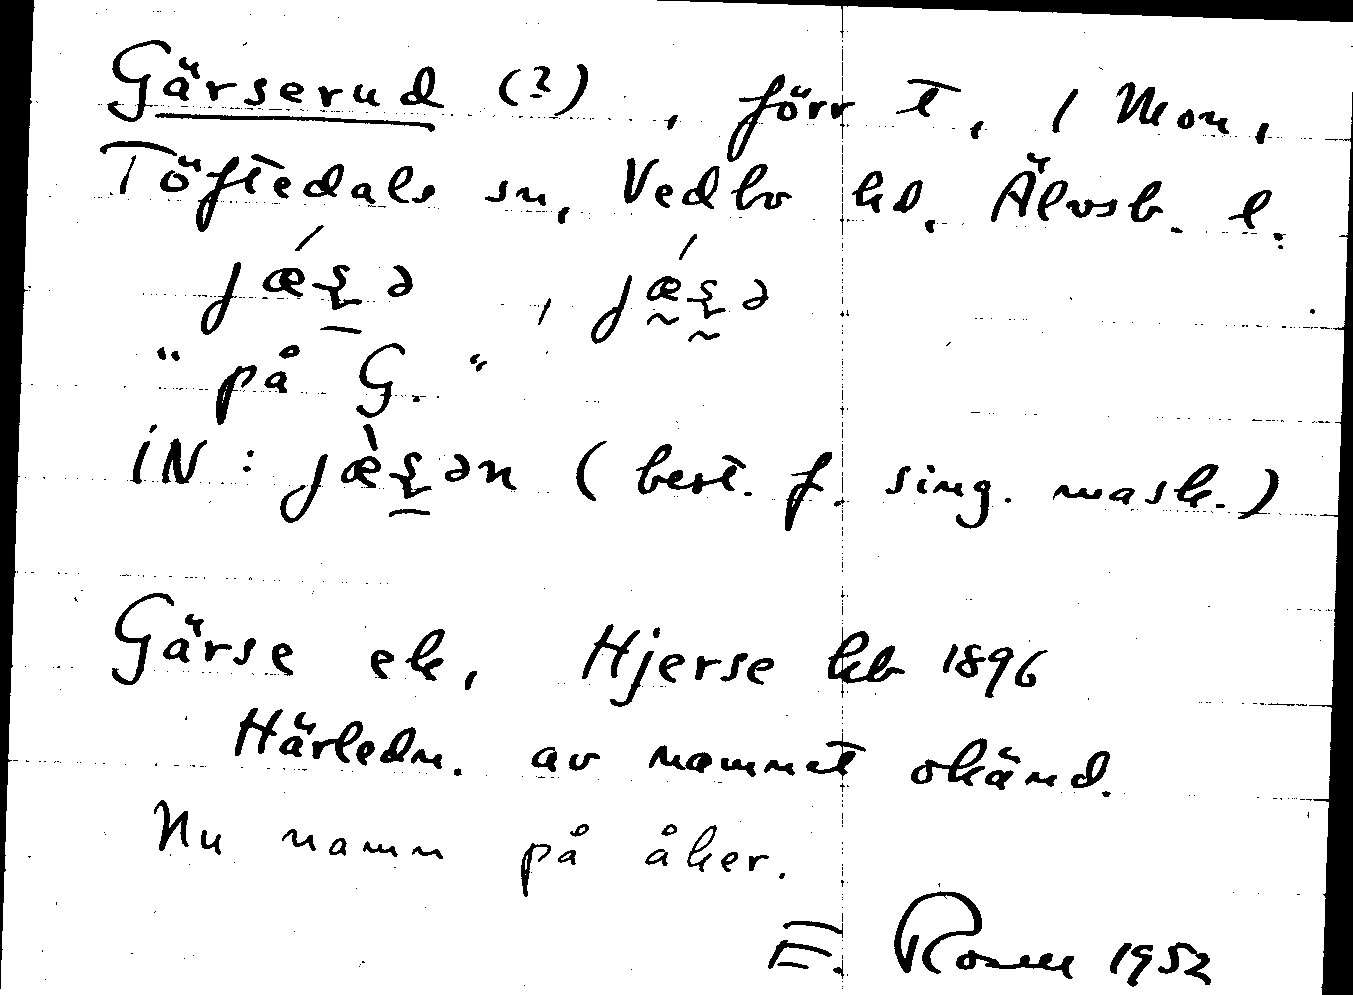 Gärserud (?), förr t, 1 Mon,
Töftedals sn, Vedbo hd, Älvsb. l.
jǽʂ̱ə, jǽ̰ʂ̰ə
"på G."
iN: jæ̀ʂ̱ən (best. f. sing. mask.)
Gärse ek, Hjerse kb 1896
Härledn. av namnet okänd.
Nu namn på åker.
E. Rosell 1952